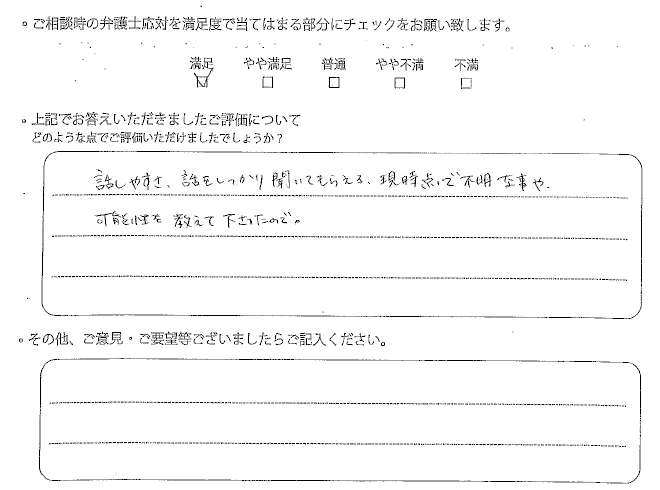 。ご相談時の弁護士応対を満足度で当てはまる部分にチェックをお願い致します。
満足 やや満足 普通 やや不満 不満
。上記でお答えいただきましたご評価について
どのような点でご評価いただけましたでしょうか？
話しやすさ、話をしっかり聞いてもらえる、現時点で不明な事や、
可能性を教えて下さったので。
。その他、ご意見・ご要望等ございましたらご記入ください。